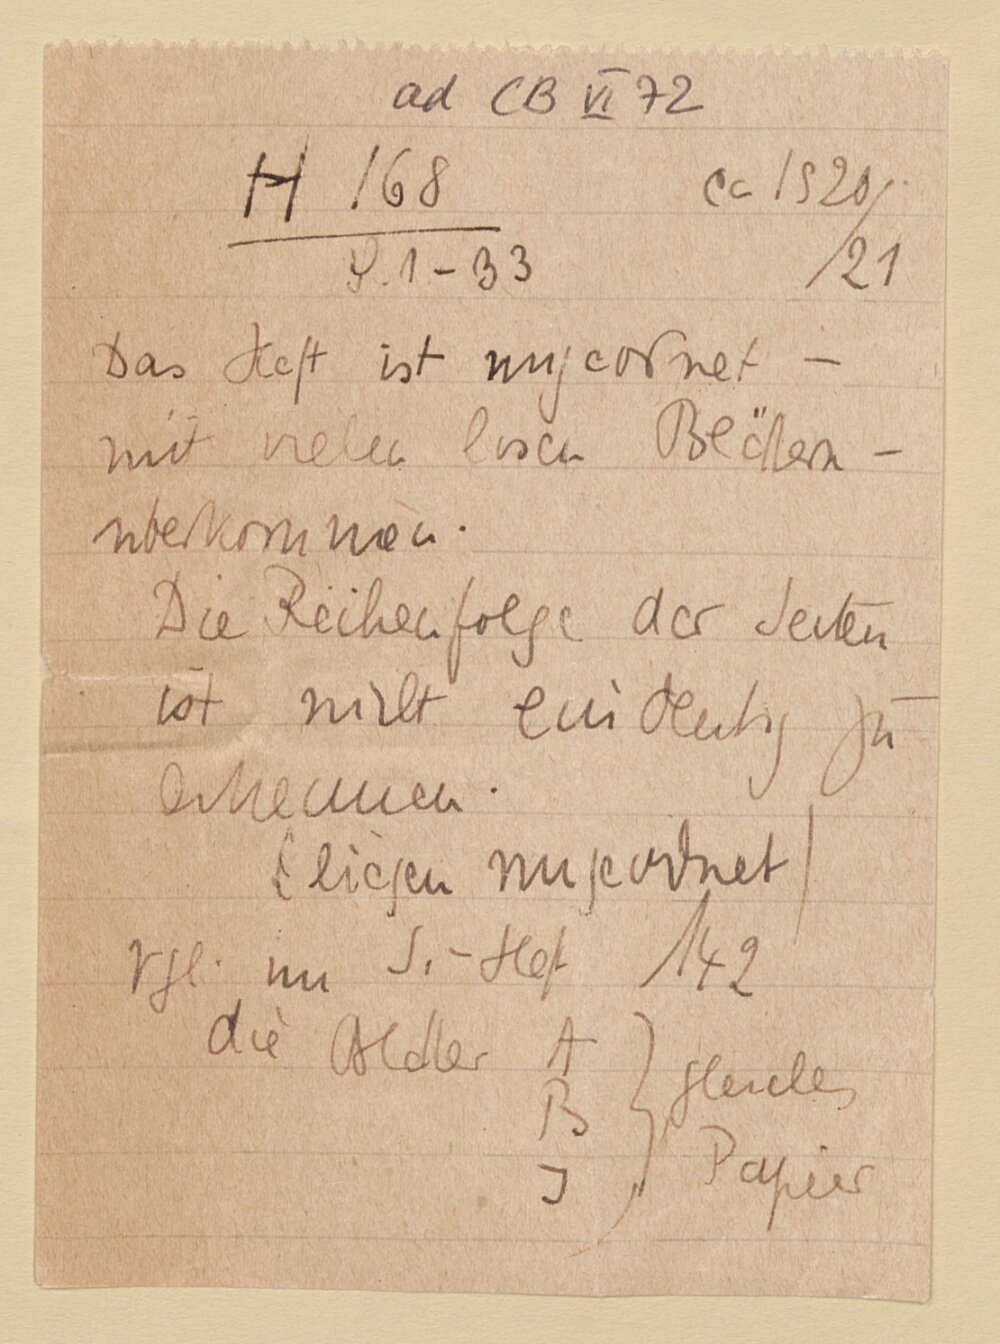 ad CB VI 72
H 168 ca 1920/
S. 1-33 /21
Das Heft ist ungeordnet –
mit vielen losen Blättern –
überkommen.
Die Reihenfolge der Seiten
ist nicht eindeutig zu
erkennen.
(liegen ungeordnet)
Vgl. im S.-Heft 142
die Blätter A
B } gleiches
J Papier